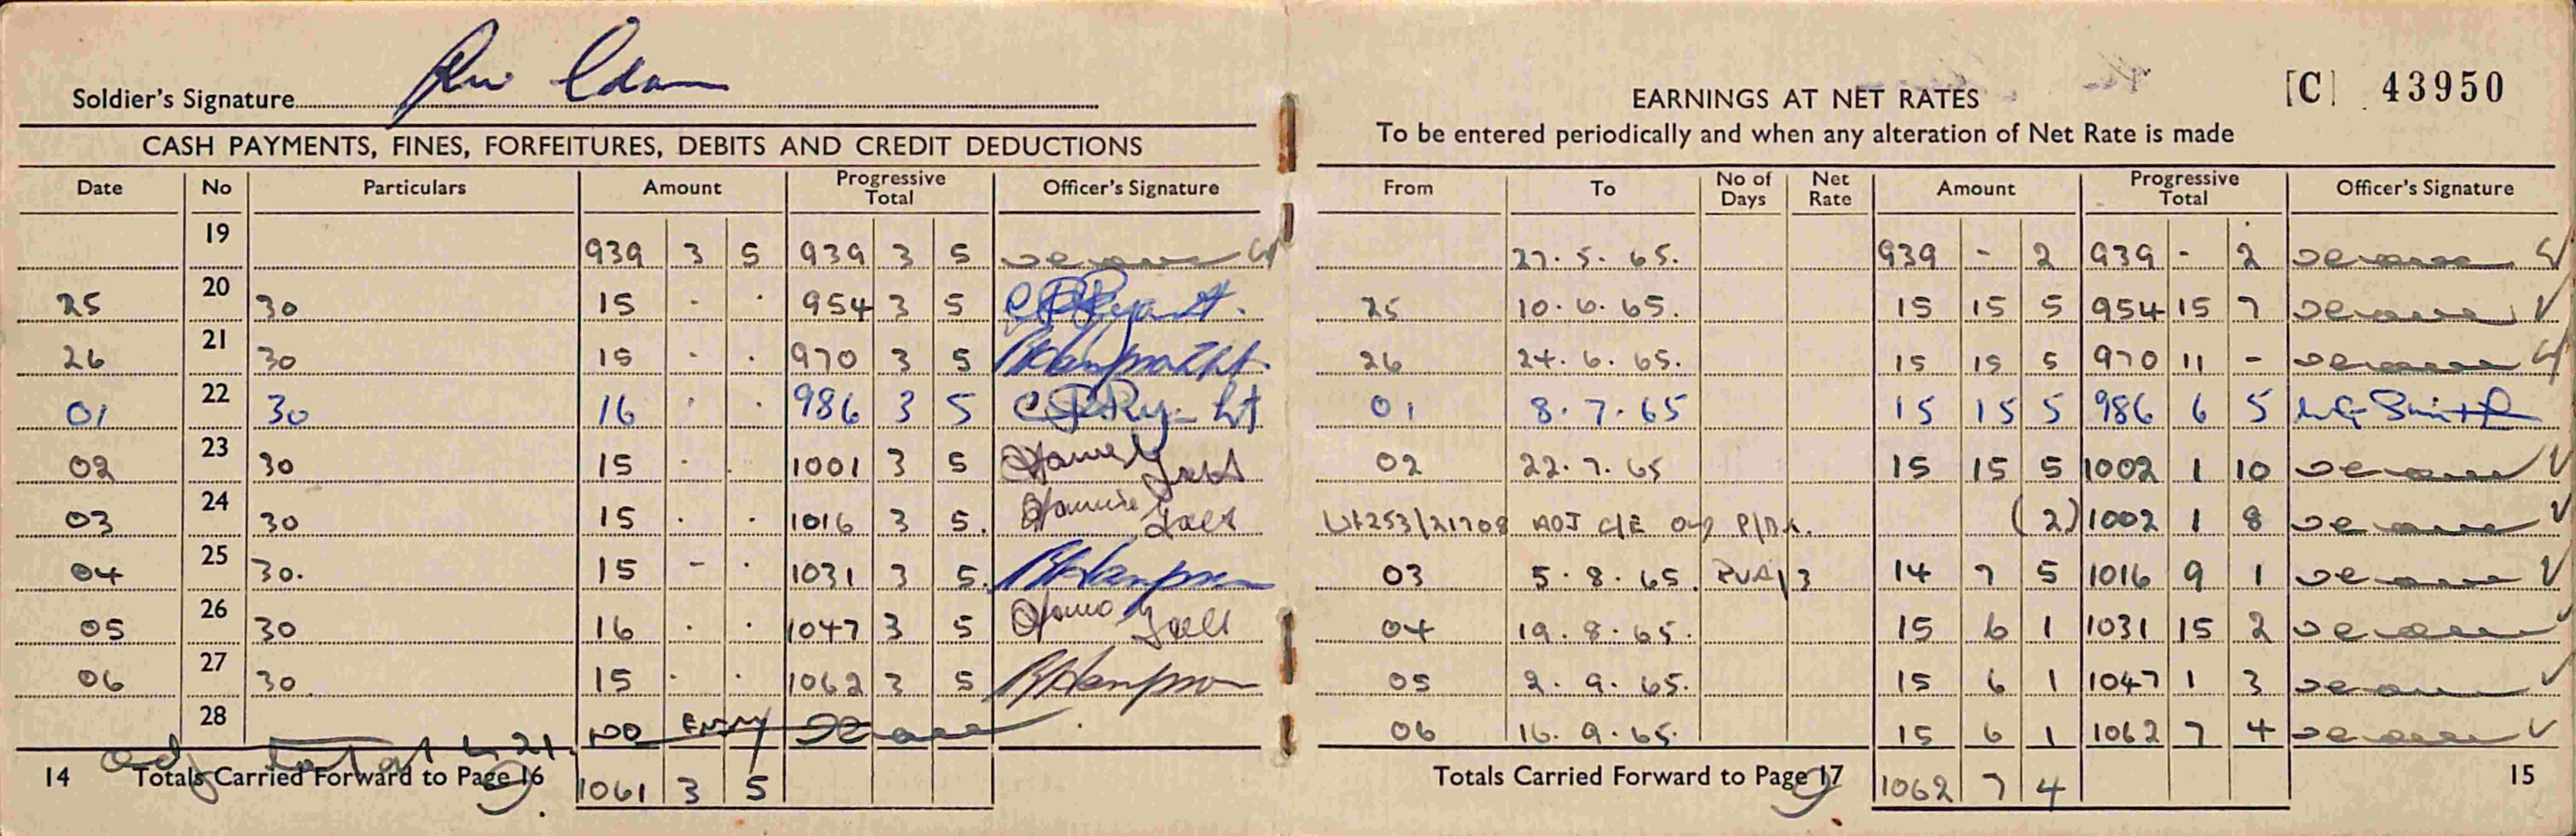 Soldier's Signature
CASH PAYMENTS, FINES, FORFEITURES, DEBITS AND CREDIT DEDUCTIONS
Date No Particulars Amount Progressive Total Officer's Signature
19 939 3 5 939 3 5
25 20 30 15 - - 954 3 5
26 21 30 15 - - 970 3 5
01 22 30 16 - - 986 3 5
02 23 30 15 - - 1001 3 5
03 24 30 15 - - 1016 3 5.
04 25 30. 15 - - 1031 3 5.
05 26 30 16 - - 1047 3 5
06 27 30. 15 - - 1062 3 5
28 NO ENTRY
14 Totals Carried Forward to Page 16 1061 3 5
[C] 43950
EARNINGS AT NET RATES
To be entered periodically and when any alteration of Net Rate is made
From To No of Days Net Rate Amount Progressive Total Officer's Signature
27.5.65. 939 - 2 939 - 2
25 10.6.65. 15 15 5 954 15 7
26 24.6.65. 15 15 5 970 11 -
01 8.7.65 15 15 5 986 6 5
02 22.7.65 15 15 5 1002 1 10
(2) 1002 1 8
03 5.8.65. 14 7 5 1016 9 1
04 19.8.65. 15 6 1 1031 15 2
05 2.9.65. 15 6 1 1047 1 3
06 16.9.65. 15 6 1 1062 7 4
Totals Carried Forward to Page 17 1062 7 4 15